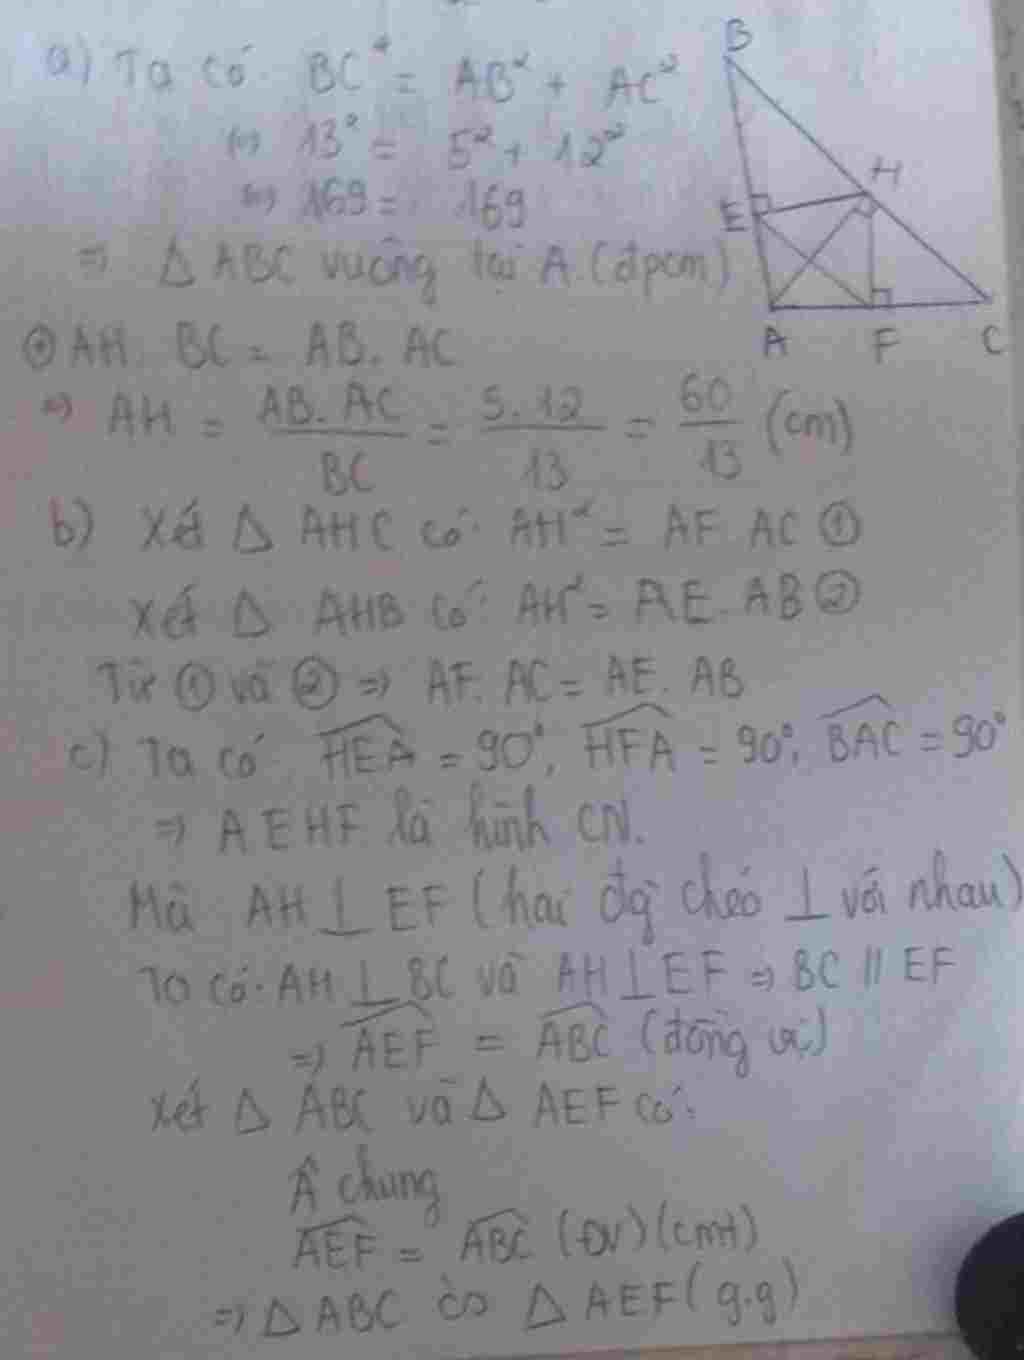 a) Ta có BC² = AB² + AC²
⇔ 13² = 5² + 12²
⇔ 169 = 169
⇒ Δ ABC vuông tại A (đpcm)
B
H
E
A F C
⊕ AH. BC = AB. AC
⇒ AH = AB. AC / BC = 5. 12 / 13 = 60 / 13 (cm)
b) Xét Δ AHC có: AH² = AF. AC ①
Xét Δ AHB có: AH² = AE. AB ②
Từ ① và ② ⇒ AF. AC = AE. AB
c) Ta có HEA = 90°, HFA = 90°, BAC = 90°
⇒ AEHF là hình CN.
Mà AH ⊥ EF (hai đg chéo ⊥ với nhau)
Ta có: AH ⊥ BC và AH ⊥ EF ⇒ BC // EF
⇒ AEF = ABC (đồng vị)
Xét Δ ABC và Δ AEF có:
Â chung
AEF = ABC (ĐV) (cmt)
⇒ Δ ABC ∽ Δ AEF (g.g)